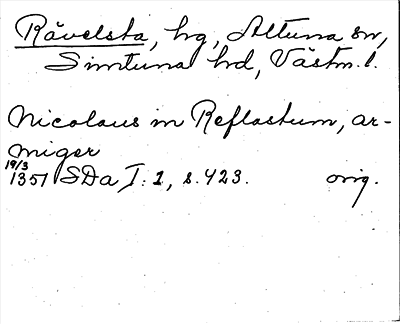 Rävelsta, hg, Altuna sn,
Simtuna hd, Västm. l.
Nicolaus in Reflastum, ar-
miger
19/3
1351 SDa I: 1, s. 423. orig.